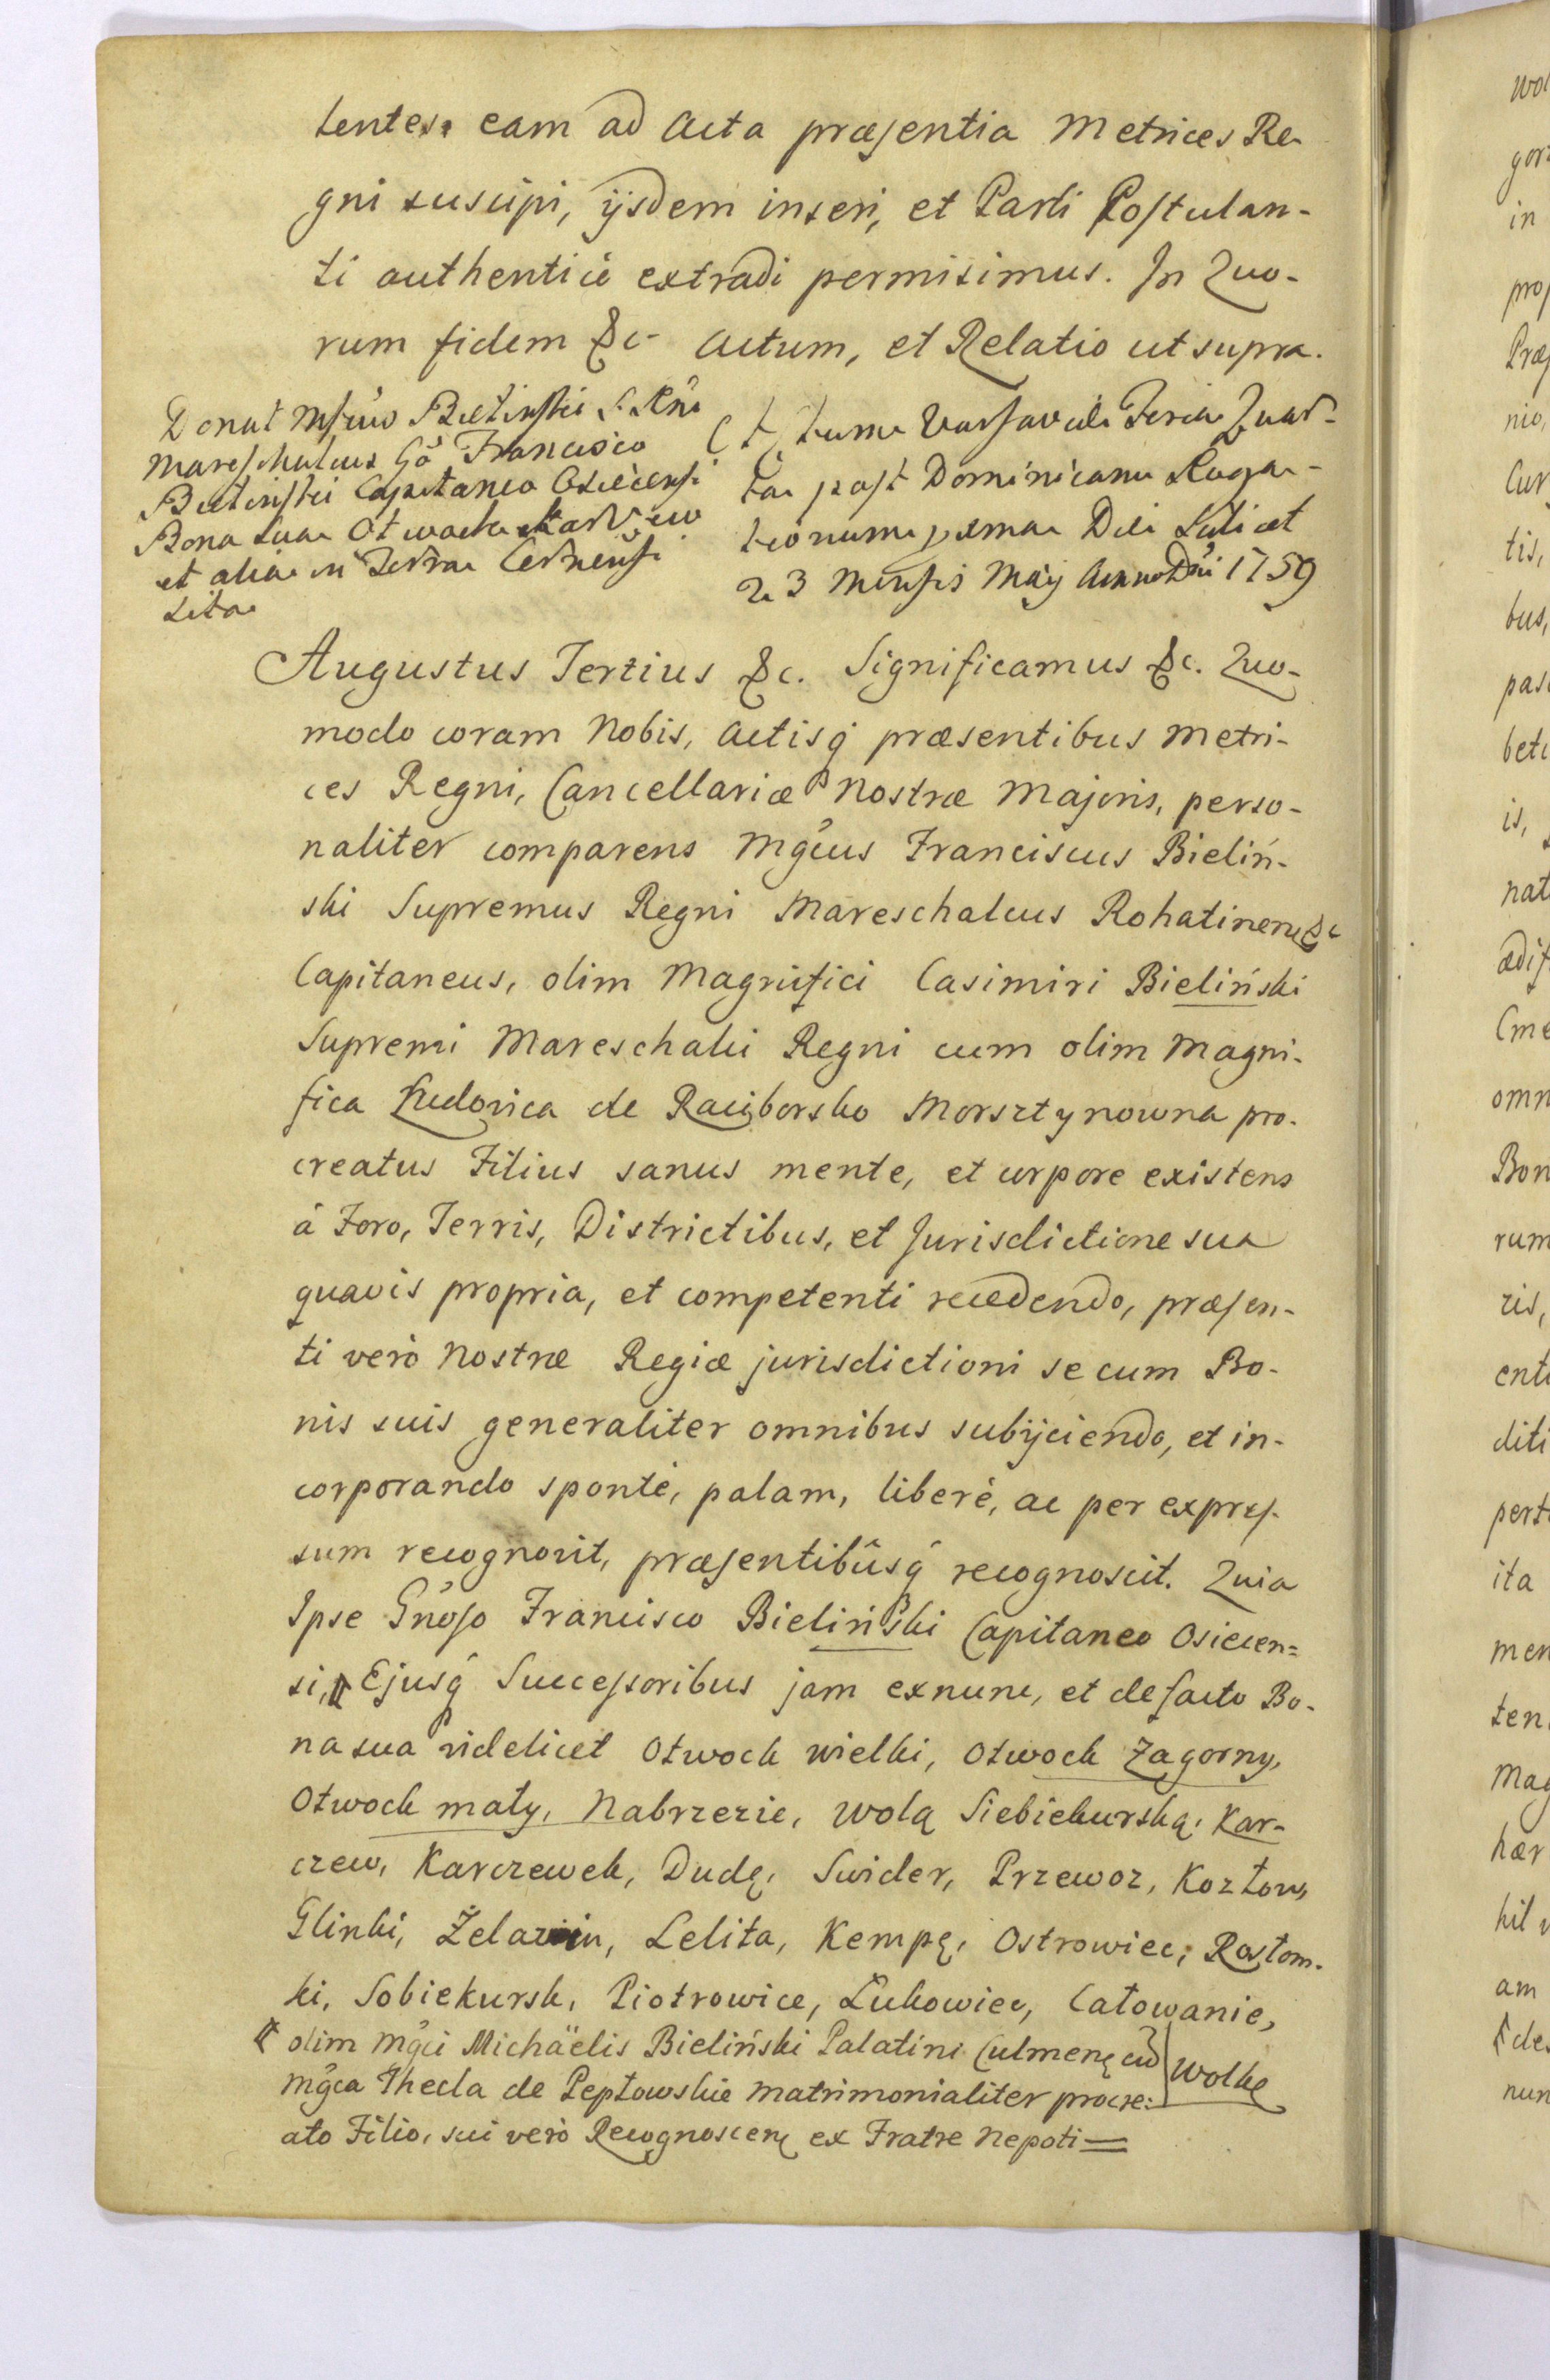 tentes eam ad Acta præsentia Metrices Re-
gni suscipi, ijsdem inseri, et Parti Postulan-
ti authenticè extradi permisimus. In Quo-
rum fidem &c- Actum, et Relatio ut supra.
Donat Bielinski S. Rni
Mareschalcus Gō Francisco
Bielinski Capitaneo Osiecensi
Bona sua Otwock Karczew
et alia in Terra Cernensi
sita
Actum Varsaviæ Feria Quar-
ta post Dominicam Roga-
tionum Die scilicet
23 Mensis Maij Anno Dni 1759
Augustus Tertius &c. Significamus &c. Quo-
modo coram Nobis, Actisq́ præsentibus Metri-
ces Regni, Cancellariæ Nostræ Majoris, perso-
naliter comparens Mgcus Franciscus Bieliń-
ski Supremus Regni Mareschalcus Rohatinen &c
Capitaneus, olim Magnifici Casimiri Bieliński
Supremi Mareschalci Regni cum olim Magni-
fica Ludovica de Raciborsko Morsztynowna pro-
creatus Filius sanus mente, et corpore existens
á Foro, Terris, Districtibus, et Jurisdictione sua
quavis propria, et competenti recedendo, præsen-
ti verò Nostræ Regiæ jurisdictioni se cum Bo-
nis suis generaliter omnibus subijciendo, et in-
corporando spontè, palam, liberè, ac per expres-
sum recognovit, præsentibûsq́ recognoscit. Quia
Ipse Gnoso Francisco Bieliński Capitaneo Osiecen=
si, Ejusq́ Successoribus jam exnunc, et defacto Bo-
na sua videlicet Otwock wielki, Otwock Zagorny,
Otwock mały, Nabrzezie, Wolą Siebiekurską, Kar-
czew, Karczewek, Dudę, Swider, Przewoz, Kozłow,
Glinki, Żelazin, Lelita, Kempę, Ostrowiec, Rosłom-
ki, Sobiekursk, Piotrowice, Łukowiec, Całowanie,
olim Mgci Michäelis Bieliński Palatini Culmen cū Wolkę
Mgca Thecla de Pepłowskie matrimonialiter procre:
ato Filio, sui verò Recognoscen ex Fratre Nepoti=